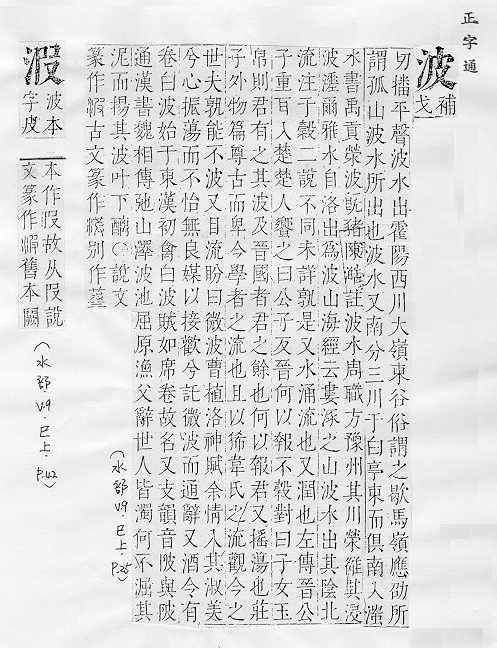 正字通
波
補戈
切播平聲波水出霍陽西川大嶺東谷俗謂之歇馬嶺應劭所
謂孤山波水所出也波水又南分三川于白亭東而俱南入滍
水書禹貢榮波旣豬註波水周職方豫州其川榮雒其浸
波溠爾雅水自洛出爲波山海經云婁涿之山波水出其陰北
流注于穀二說不同未詳孰是又水涌流也又潤也左傳晉公
子重耳入楚楚人饗之曰公子反晉何以報不穀對曰子女玉
帛則君有之其波及晉國者君之餘也何以報君又搖蕩也莊
子外物篇尊古而卑今學者之流也且以狶韋氏之流觀今之
世夫孰能不波又目流盼曰微波曹植洛神賦余情入其淑美
兮心振蕩而不怡無良媒以接歡兮託微波而通辭又酒令有
卷白波始于東漢初禽白波賊如席卷故名又支韻音陂與陂
通漢書魏相傳弛山澤波池屈原漁父辭世人皆濁何不淈其
泥而揚其波叶下醨○說文
篆作古文篆作別作
(水部 V9. 巳上. P.25)
波本
字皮
本作故从說
文篆作舊本闕
(水部 V.9. 巳上. P.42)